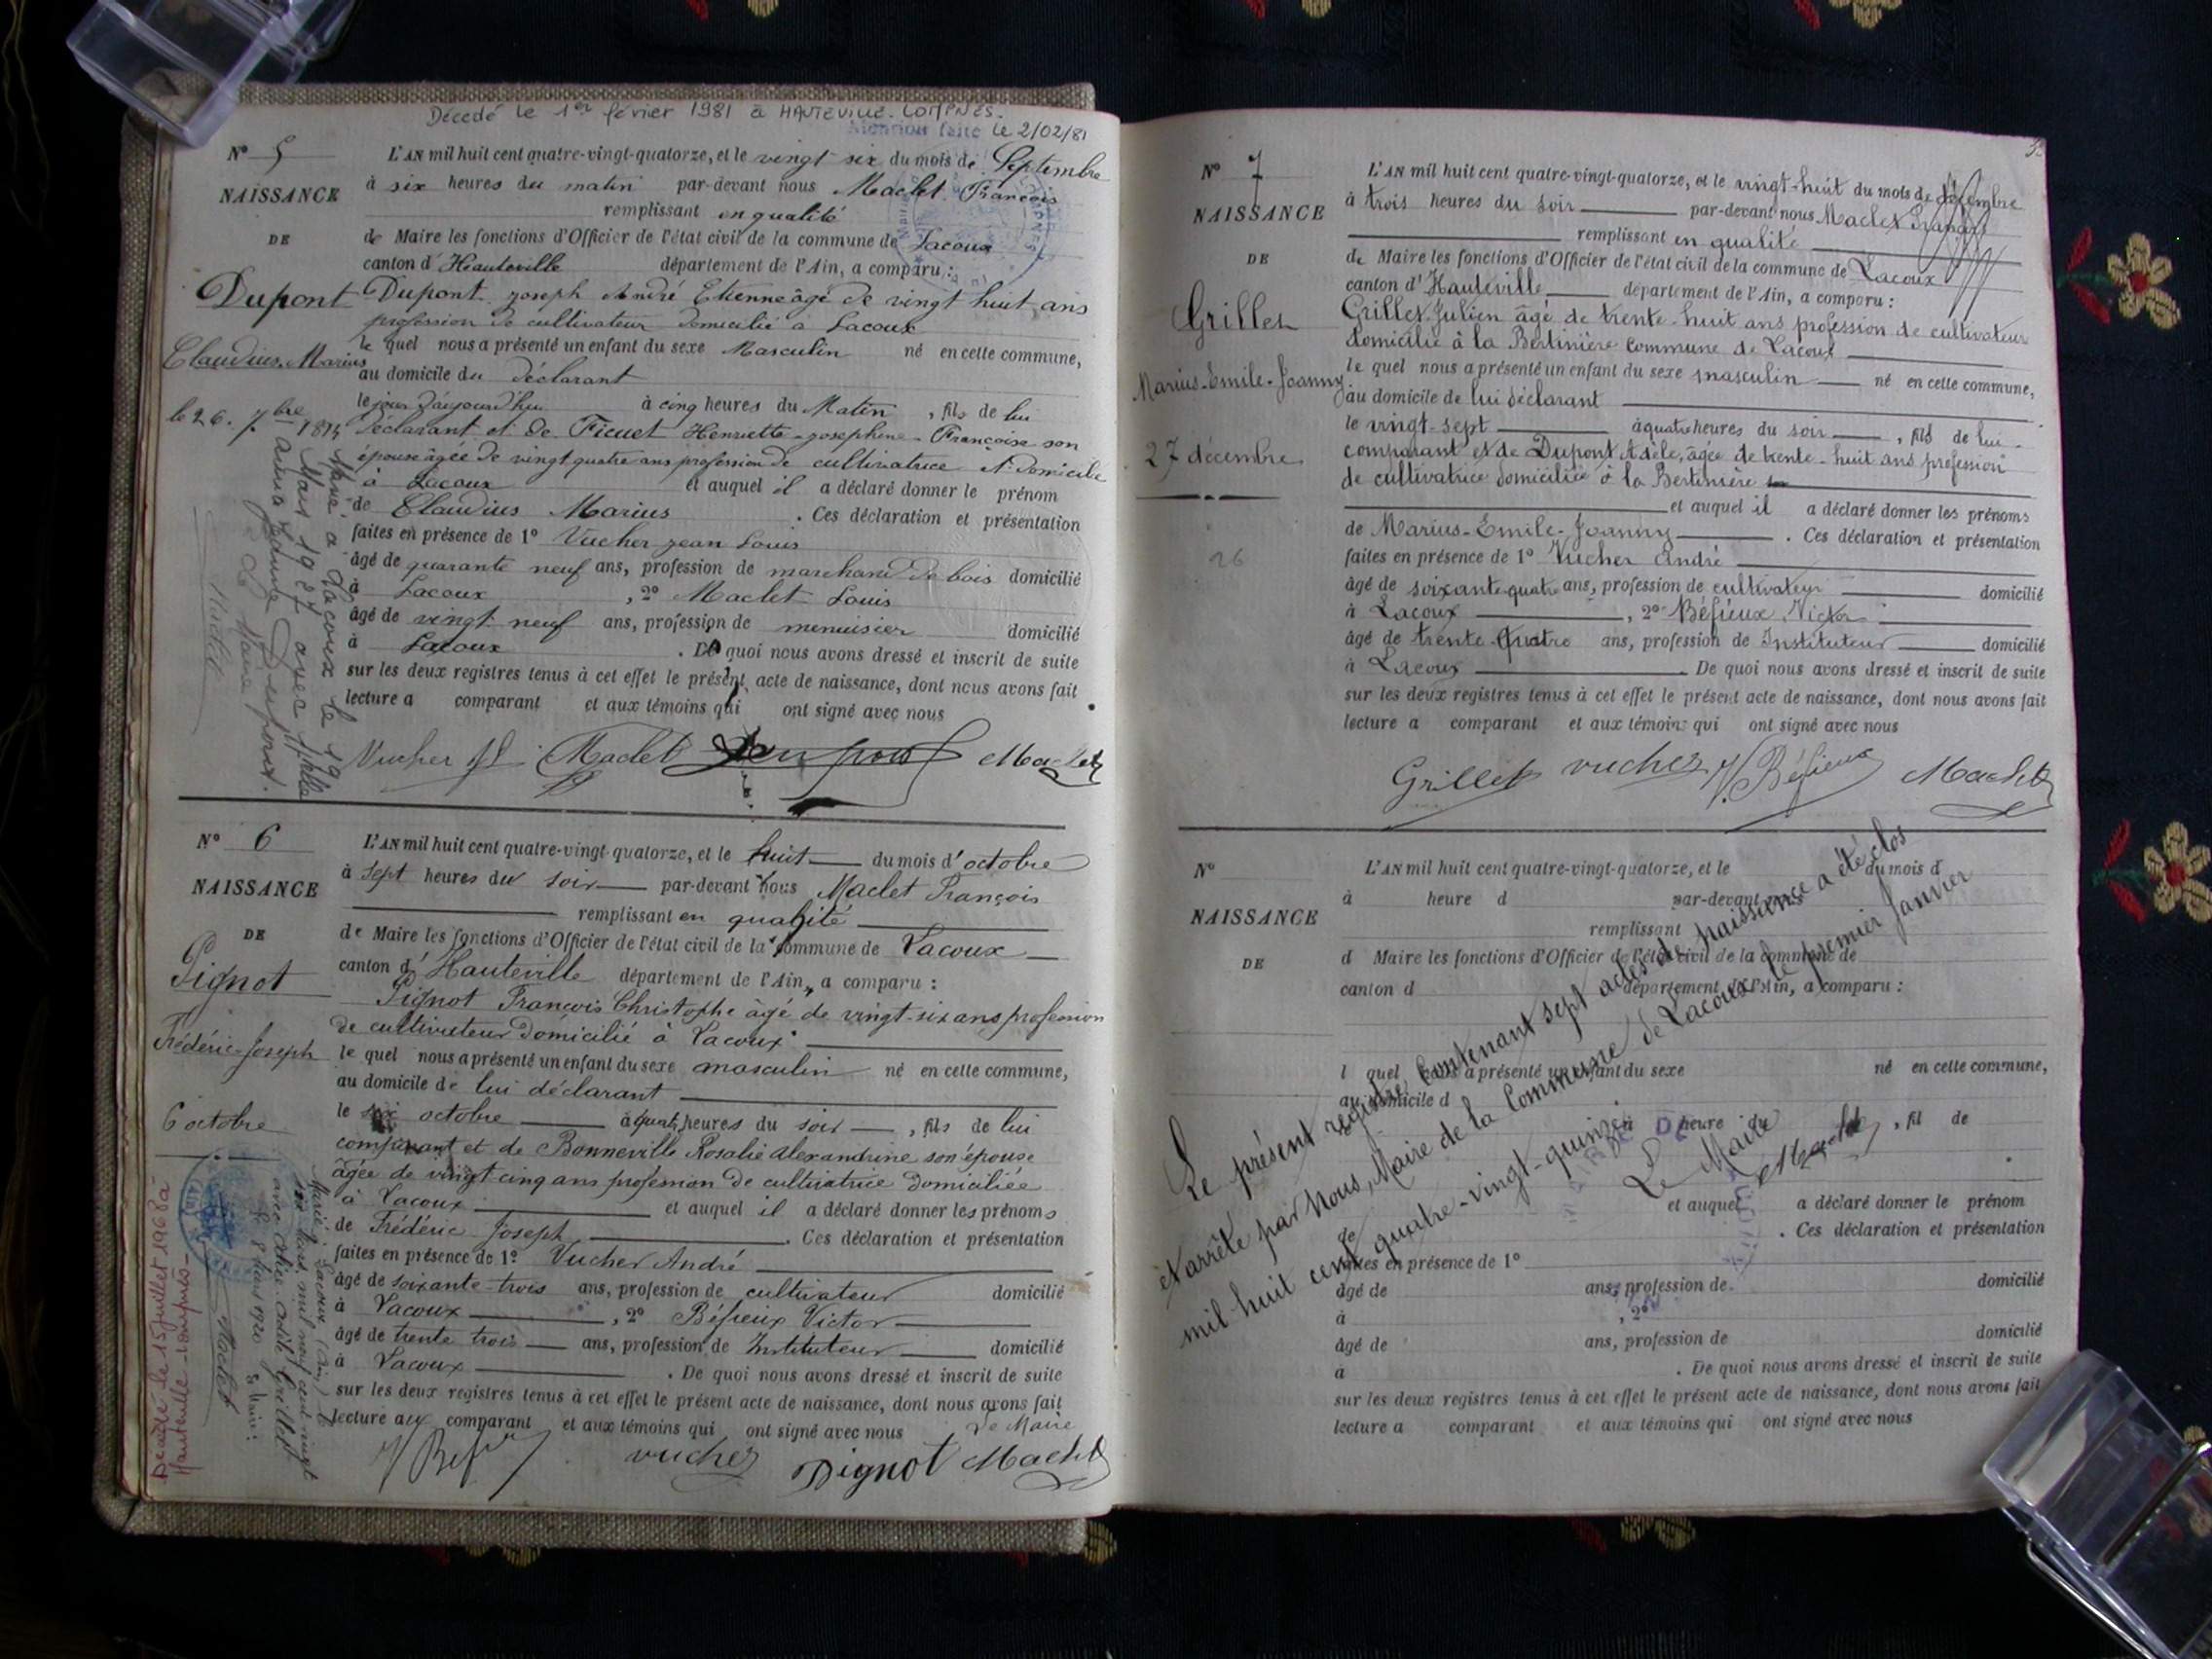 Décédé le 1er février 1981 à HAUTEVILLE-LOMPNES.
Mention faite le 2/02/81
N° 5
NAISSANCE
DE
Dupont
Claudius, Marius
le 26. 7bre
L'AN mil huit cent quatre-vingt-quatorze, et le vingt six du mois de Septembre
à six heures du matin par-devant nous Maclet François
remplissant en qualité
de Maire les fonctions d'Officier de l'état civil de la commune de Lacoux
canton d'Hauteville département de l'Ain, a comparu :
Dupont Joseph André Etienne âgé de vingt huit ans
profession de cultivateur domicilié à Lacoux
le quel nous a présenté un enfant du sexe Masculin né en cette commune,
au domicile du déclarant
le jour d'aujourd'hui à cinq heures du Matin, fils de lui
déclarant et de Ficuet Henriette-Josephine-Françoise son
épouse âgée de vingt quatre ans profession de cultivatrice et domicilié
à Lacoux et auquel il a déclaré donner le prénom
de Claudius Marius . Ces déclaration et présentation
faites en présence de 1° Vucher Jean Louis
âgé de quarante neuf ans, profession de marchand de bois domicilié
à Lacoux , 2° Maclet Louis
âgé de vingt neuf ans, profession de menuisier domicilié
à Lacoux . De quoi nous avons dressé et inscrit de suite
sur les deux registres tenus à cet effet le présent acte de naissance, dont nous avons fait
lecture a comparant et aux témoins qui ont signé avec nous
Marié à Lacoux le 19
Mars 1927 avec Melle
Jeanne Dupont.
Le Maire
Maclet
Vucher Jl Maclet Dupont Maclet
N° 6
NAISSANCE
DE
Pignot
Frédéric-Joseph
6 octobre
L'AN mil huit cent quatre-vingt-quatorze, et le huit du mois d'octobre
à sept heures du soir par-devant nous Maclet François
remplissant en qualité
de Maire les fonctions d'Officier de l'état civil de la commune de Lacoux
canton d'Hauteville département de l'Ain, a comparu :
Pignot François Christophe âgé de vingt-six ans profession
de cultivateur domicilié à Lacoux
le quel nous a présenté un enfant du sexe masculin né en cette commune,
au domicile de lui déclarant
le six octobre à quatre heures du soir , fils de lui
comparant et de Bonneville Rosalie Alexandrine son épouse
âgée de vingt-cinq ans profession de cultivatrice domiciliée
à Lacoux et auquel il a déclaré donner les prénoms
de Frédéric Joseph . Ces déclaration et présentation
faites en présence de 1° Vucher André
âgé de soixante-trois ans, profession de cultivateur domicilié
à Lacoux , 2° Béfieux Victor
âgé de trente trois ans, profession de Instituteur domicilié
à Lacoux . De quoi nous avons dressé et inscrit de suite
sur les deux registres tenus à cet effet le présent acte de naissance, dont nous avons fait
lecture au comparant et aux témoins qui ont signé avec nous
Le Maire
Marié à Lacoux (Ain) le
six Mars mil neuf cent vingt
avec Grillet
8 Mars 1920
Le Maire :
Maclet
Décédé le 15 juillet 1968 à
Hauteville-Lompnès-
V Béf vucher Pignot Maclet
N° 7
NAISSANCE
DE
Grillet
Marius-Emile-Joanny
27 décembre
26
L'AN mil huit cent quatre-vingt-quatorze, et le vingt-huit du mois de décembre
à trois heures du soir par-devant nous Maclet François
remplissant en qualité
de Maire les fonctions d'Officier de l'état civil de la commune de Lacoux
canton d'Hauteville département de l'Ain, a comparu :
Grillet Julien âgé de trente-huit ans profession de cultivateur
domicilié à la Bertinière commune de Lacoux
le quel nous a présenté un enfant du sexe masculin né en cette commune,
au domicile de lui déclarant
le vingt-sept à quatre heures du soir , fils de lui
comparant et de Dupont Adèle, âgée de trente-huit ans profession
de cultivatrice domiciliée à la Bertinière
et auquel il a déclaré donner les prénoms
de Marius-Emile-Joanny . Ces déclaration et présentation
faites en présence de 1° Vucher André
âgé de soixante-quatre ans, profession de cultivateur domicilié
à Lacoux , 2° Béfieux Victor
âgé de trente-quatre ans, profession de Instituteur domicilié
à Lacoux . De quoi nous avons dressé et inscrit de suite
sur les deux registres tenus à cet effet le présent acte de naissance, dont nous avons fait
lecture a comparant et aux témoins qui ont signé avec nous
Grillet vucher V. Béfieux Maclet
N°
NAISSANCE
DE
L'AN mil huit cent quatre-vingt-quatorze, et le du mois d
à heure d par-devant nous
remplissant
d Maire les fonctions d'Officier de l'état civil de la commune de
canton d département de l'Ain, a comparu :
l quel nous a présenté un enfant du sexe né en cette commune,
au domicile d
le à heure du , fil de
et auquel a déclaré donner le prénom
de . Ces déclaration et présentation
faites en présence de 1°
âgé de ans, profession de domicilié
à , 2°
âgé de ans, profession de domicilié
à . De quoi nous avons dressé et inscrit de suite
sur les deux registres tenus à cet effet le présent acte de naissance, dont nous avons fait
lecture a comparant et aux témoins qui ont signé avec nous
Le présent registre contenant sept actes de naissance a été clos
et arrêté par Nous, Maire de la Commune de Lacoux le premier Janvier
mil huit cent quatre-vingt-quinze
Le Maire
Maclet